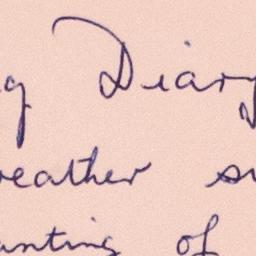 g Diary
weather su
anting of